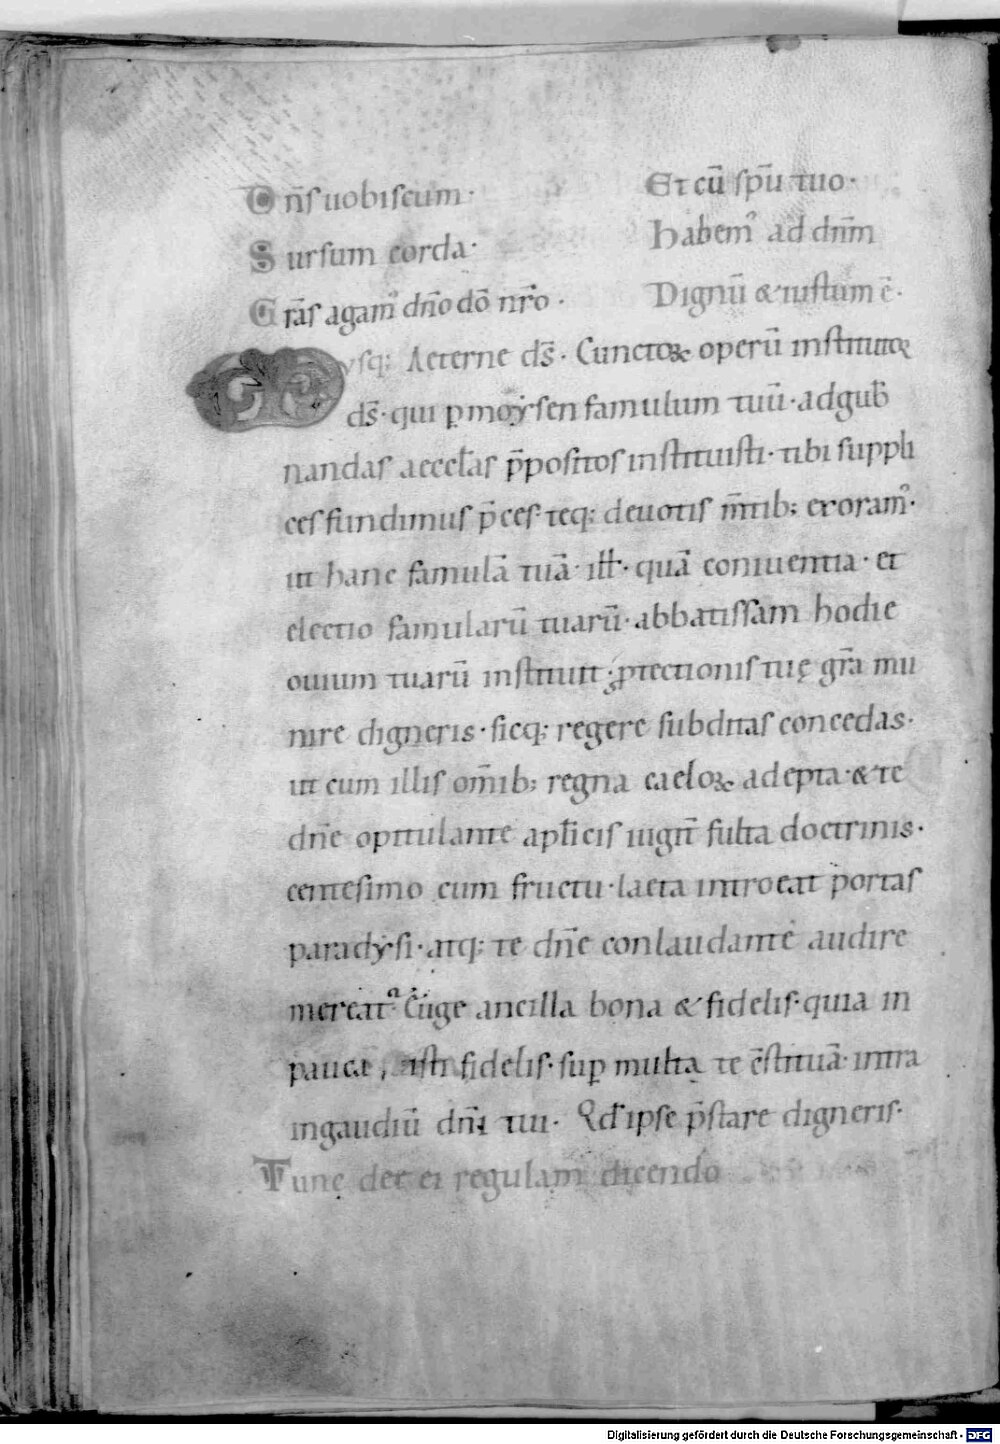 Dn̄s uobiscum· Et cū sp̄u tuo·
Sursum corda· habem᷒ ad dn̄m
Gr̄as agam᷒ dn̄o dō nr̄o· Dignū & iustum ē·
usq; Aeterne ds̄· Cunctoꝝ operū institutor
ds̄· qui ꝑ moẏsen famulum tuū· ad gub̄
nandas aeccl̄as p̄positos instituisti· tibi suppli
ces fundimus p̄ces· teq; deuotis m̄tib; exoram᷒·
ut hanc famulā tuā· ill̄· quā coniuentia· et
electio famularū tuarū· abbatissam hodie
ouium tuarū instituit· ꝓtectionis tuę gr̄a mu
nire digneris· sicq; regere subditas concedas·
ut cum illis om̄ib; regna caeloꝝ adepta· & te
dn̄e opitulante apl̄icis iugit̄ fulta doctrinis·
centesimo cum fructu· laeta introeat portas
paradẏsi· atq; te dn̄e conlaudante audire
mereat᷑· Euge ancilla bona & fidelis· quia in
pauca fidelis· suꝑ multa te c̄stituā· intra
in gaudiū dn̄i tui· Qd̄ ipse p̄stare digneris·
Tunc det ei regulam dicendo
Digitalisierung gefördert durch die Deutsche Forschungsgemeinschaft - DFG